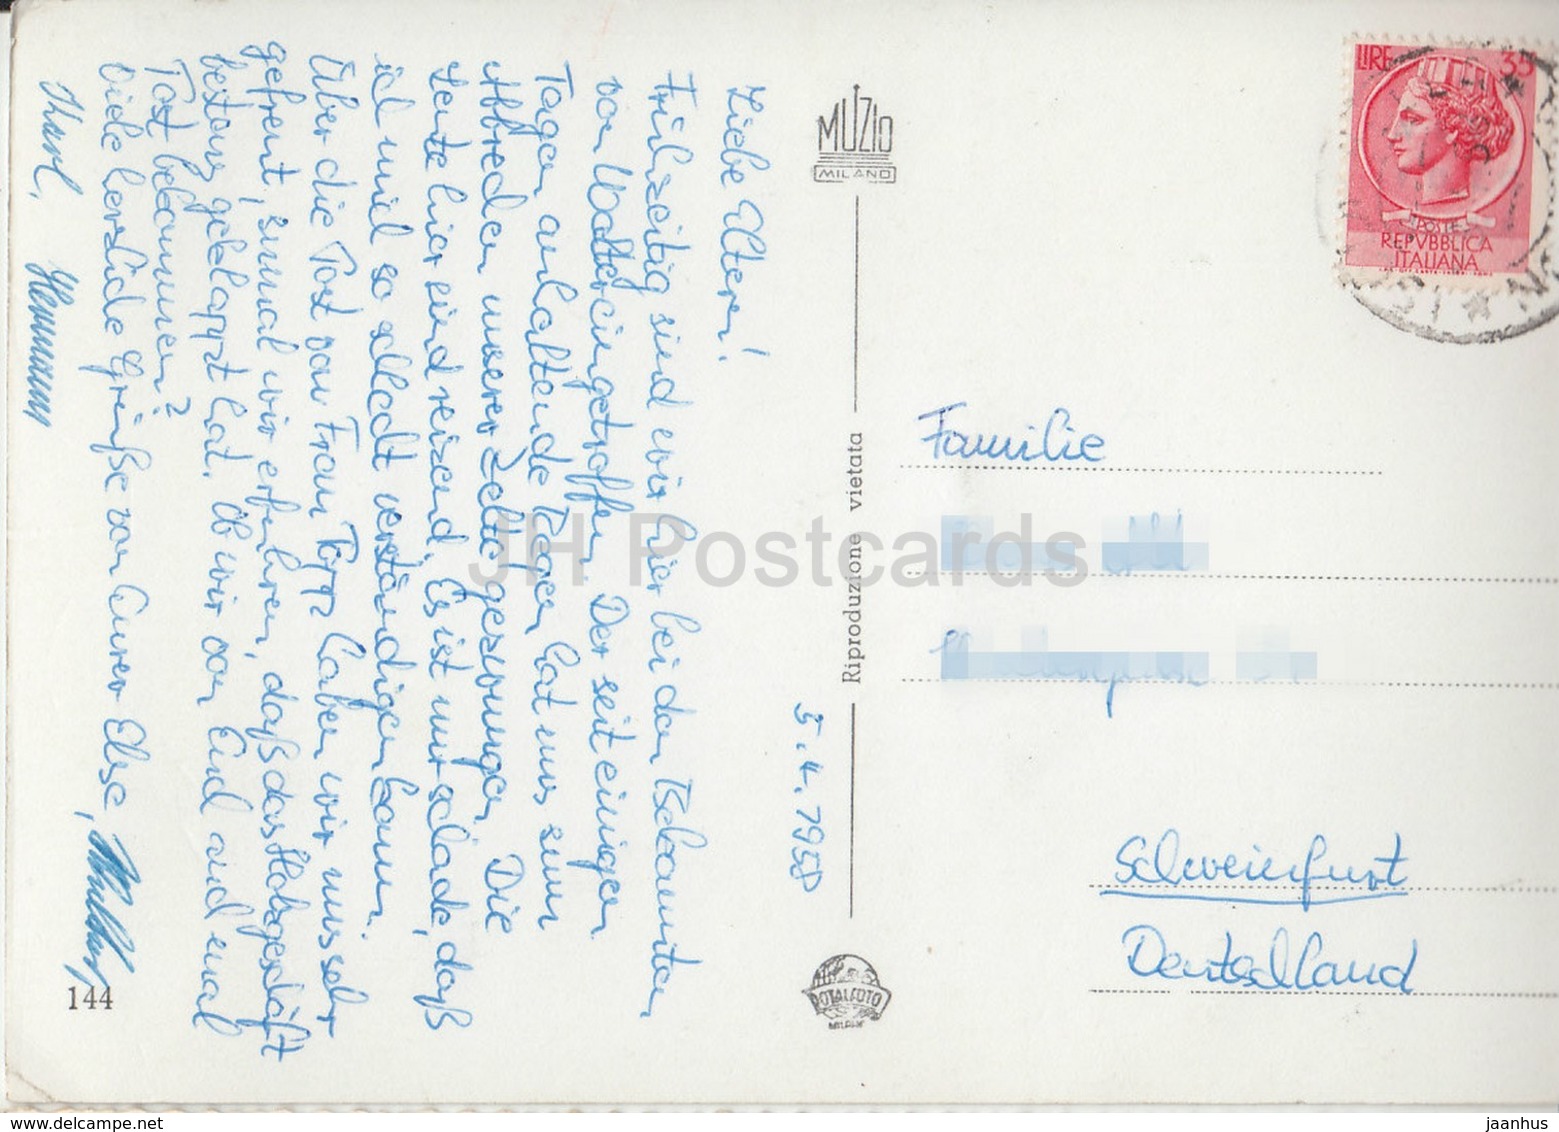 5.4.1958
Liebe Eltern!
Frühzeitig sind wir hier bei den Bekannten
von Walter eingetroffen. Der seit einigen
Tagen anhaltende Regen hat uns zum
Abbrechen unserer Zelte gezwungen. Die
Leute hier sind reizend. Es ist nur schade, daß
ich mich so schlecht verständigen kann.
Über die Post von Frau Popp haben wir uns sehr
gefreut, zumal wir erfuhren, daß das Hobgeschäft
bestens geklappt hat. Ob wir von Euch auch mal
Post bekommen?
Viele herzliche Grüße von Eurer Else,
Karl, Hermann
144
MUZIO
MILANO
Riproduzione vietata
TOTALFOTO
MILANO
LIRE 35
POSTE
REPVBBLICA
ITALIANA
Familie
Schweinfurt
Deutschland
JH Postcards
www.delcampe.net
jaanhus